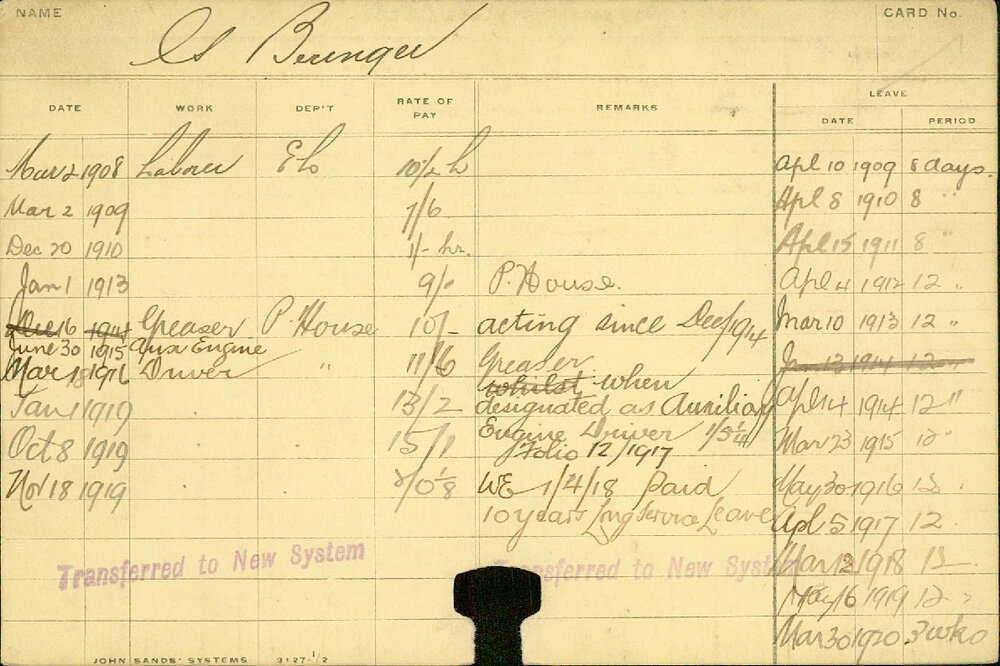 NAME Beringer CARD No.
DATE WORK DEP'T RATE OF PAY REMARKS LEAVE
DATE PERIOD
Mar 2 1908 Laborer 10½ h Apl 10 1909 8 days.
Mar 2 1909 7/6 Apl 8 1910 8 "
Dec 20 1910 1/- hr. Apl 15 1911 8 "
Jan 1 1913 9/- P. House. Apl 4 1912 12 "
Dec 16 1914 Greaser P. House 10/- acting since Dec/1914 Mar 10 1913 12 "
June 30 1915 Aux Engine Greaser 13 1914 12
Mar 1 1916 Driver " 11/6 whilst when
Jan 1 1919 13/2 designated as Auxiliary Apl 14 1914 12 "
Oct 8 1919 15/1 Engine Driver Mar 23 1915 12 "
Folio 12/1917
Nov 18 1919 WE 1/4/18 Paid May 30 1916 12 .
10 years Long Service Leave Apl 5 1917 12 .
Transferred to New System Transferred to New System Mar 12 1918 12 .
May 16 1919 12 "
Mar 30 1920 3 wks
JOHN SANDS' SYSTEMS 3127-1/2